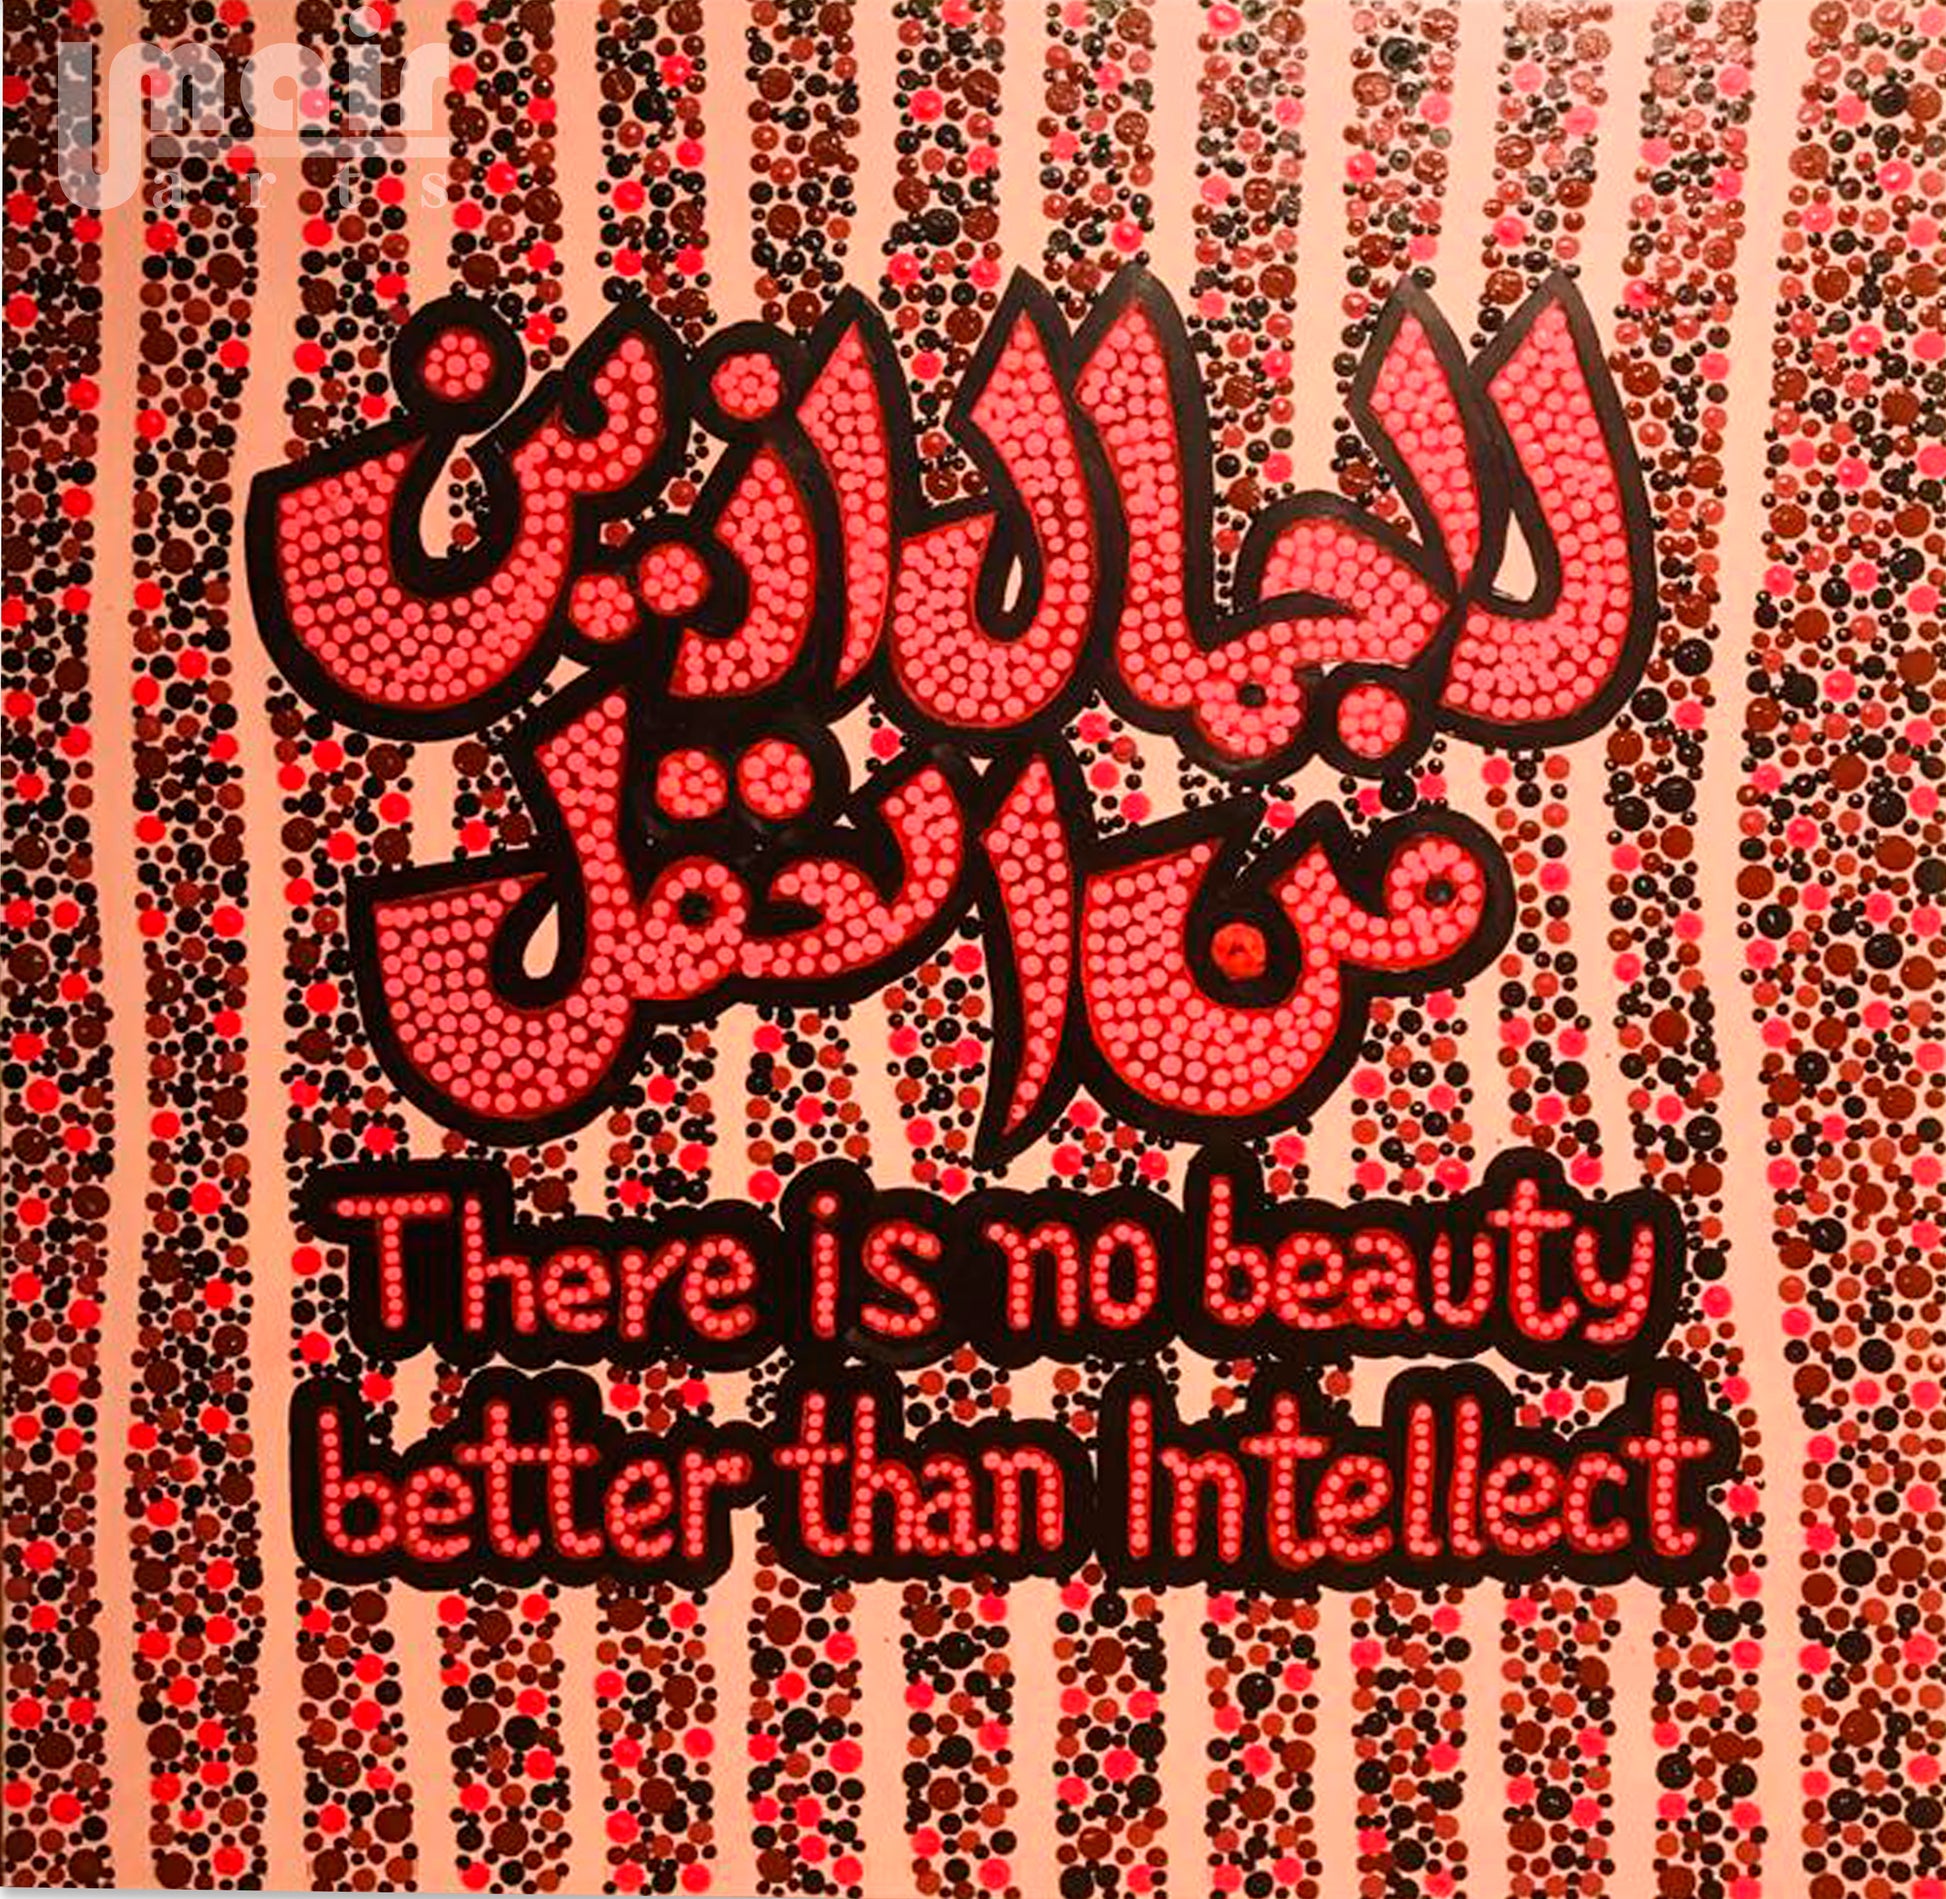 Umair
arts
لا جمال ازين
من العقل
There is no beauty
better than Intellect